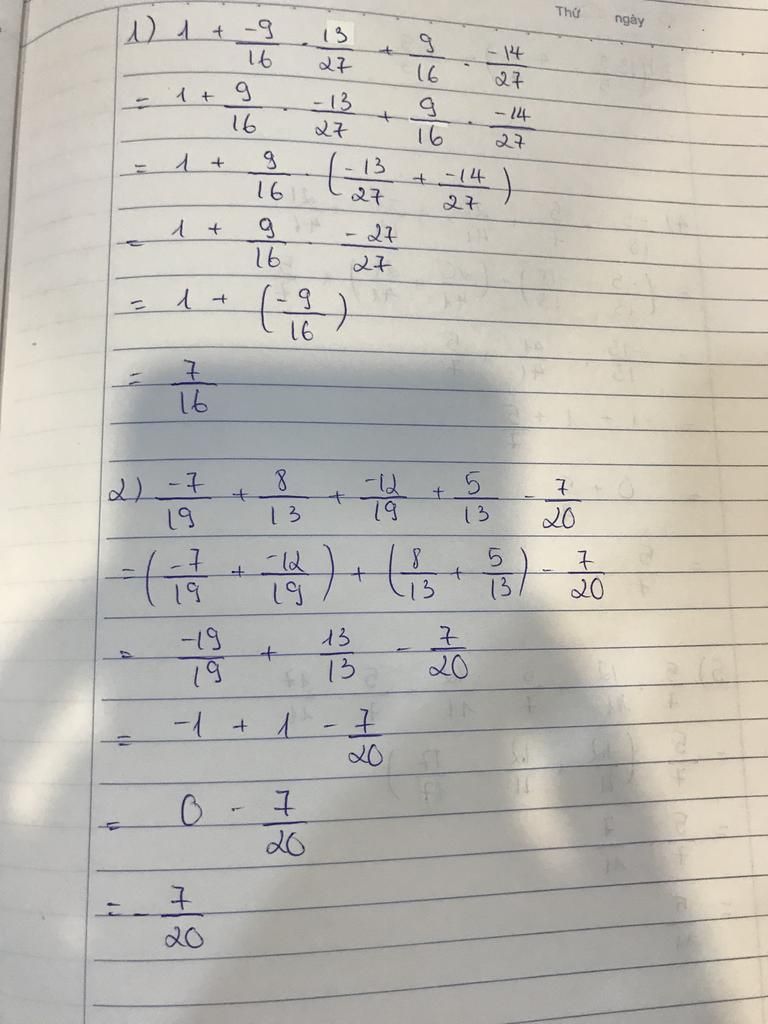 Thứ ngày
1) 1 + -9/16 . 13/27 + 9/16 . -14/27
= 1 + 9/16 . -13/27 + 9/16 . -14/27
= 1 + 9/16 . (-13/27 + -14/27)
= 1 + 9/16 . -27/27
= 1 + (-9/16)
= 7/16
2) -7/19 + 8/13 + -12/19 + 5/13 - 7/20
= (-7/19 + -12/19) + (8/13 + 5/13) - 7/20
= -19/19 + 13/13 - 7/20
= -1 + 1 - 7/20
= 0 - 7/20
= - 7/20